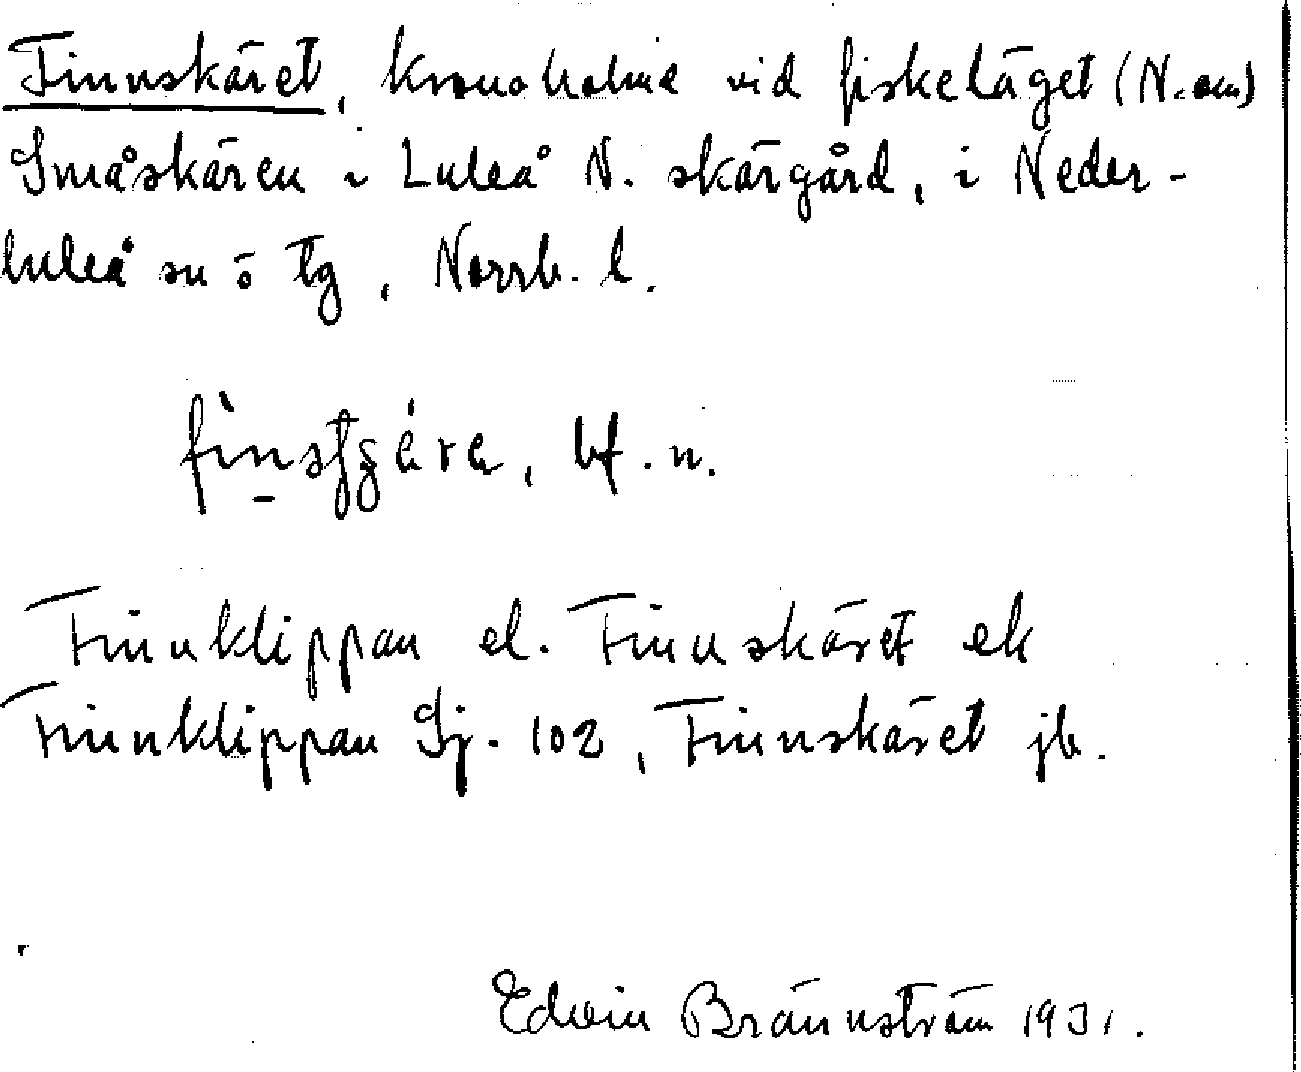 Finnskäret, kronoholme vid fiskeläget (N. om)
Småskären i Luleå N. skärgård, i Neder-
luleå sn ö tg, Norrb. l.
bf. n.
Finnklippan el. Finnskäret ek
Finnklippan Sj. 102, Finnskäret jb.
Edvin Brännström 1931.